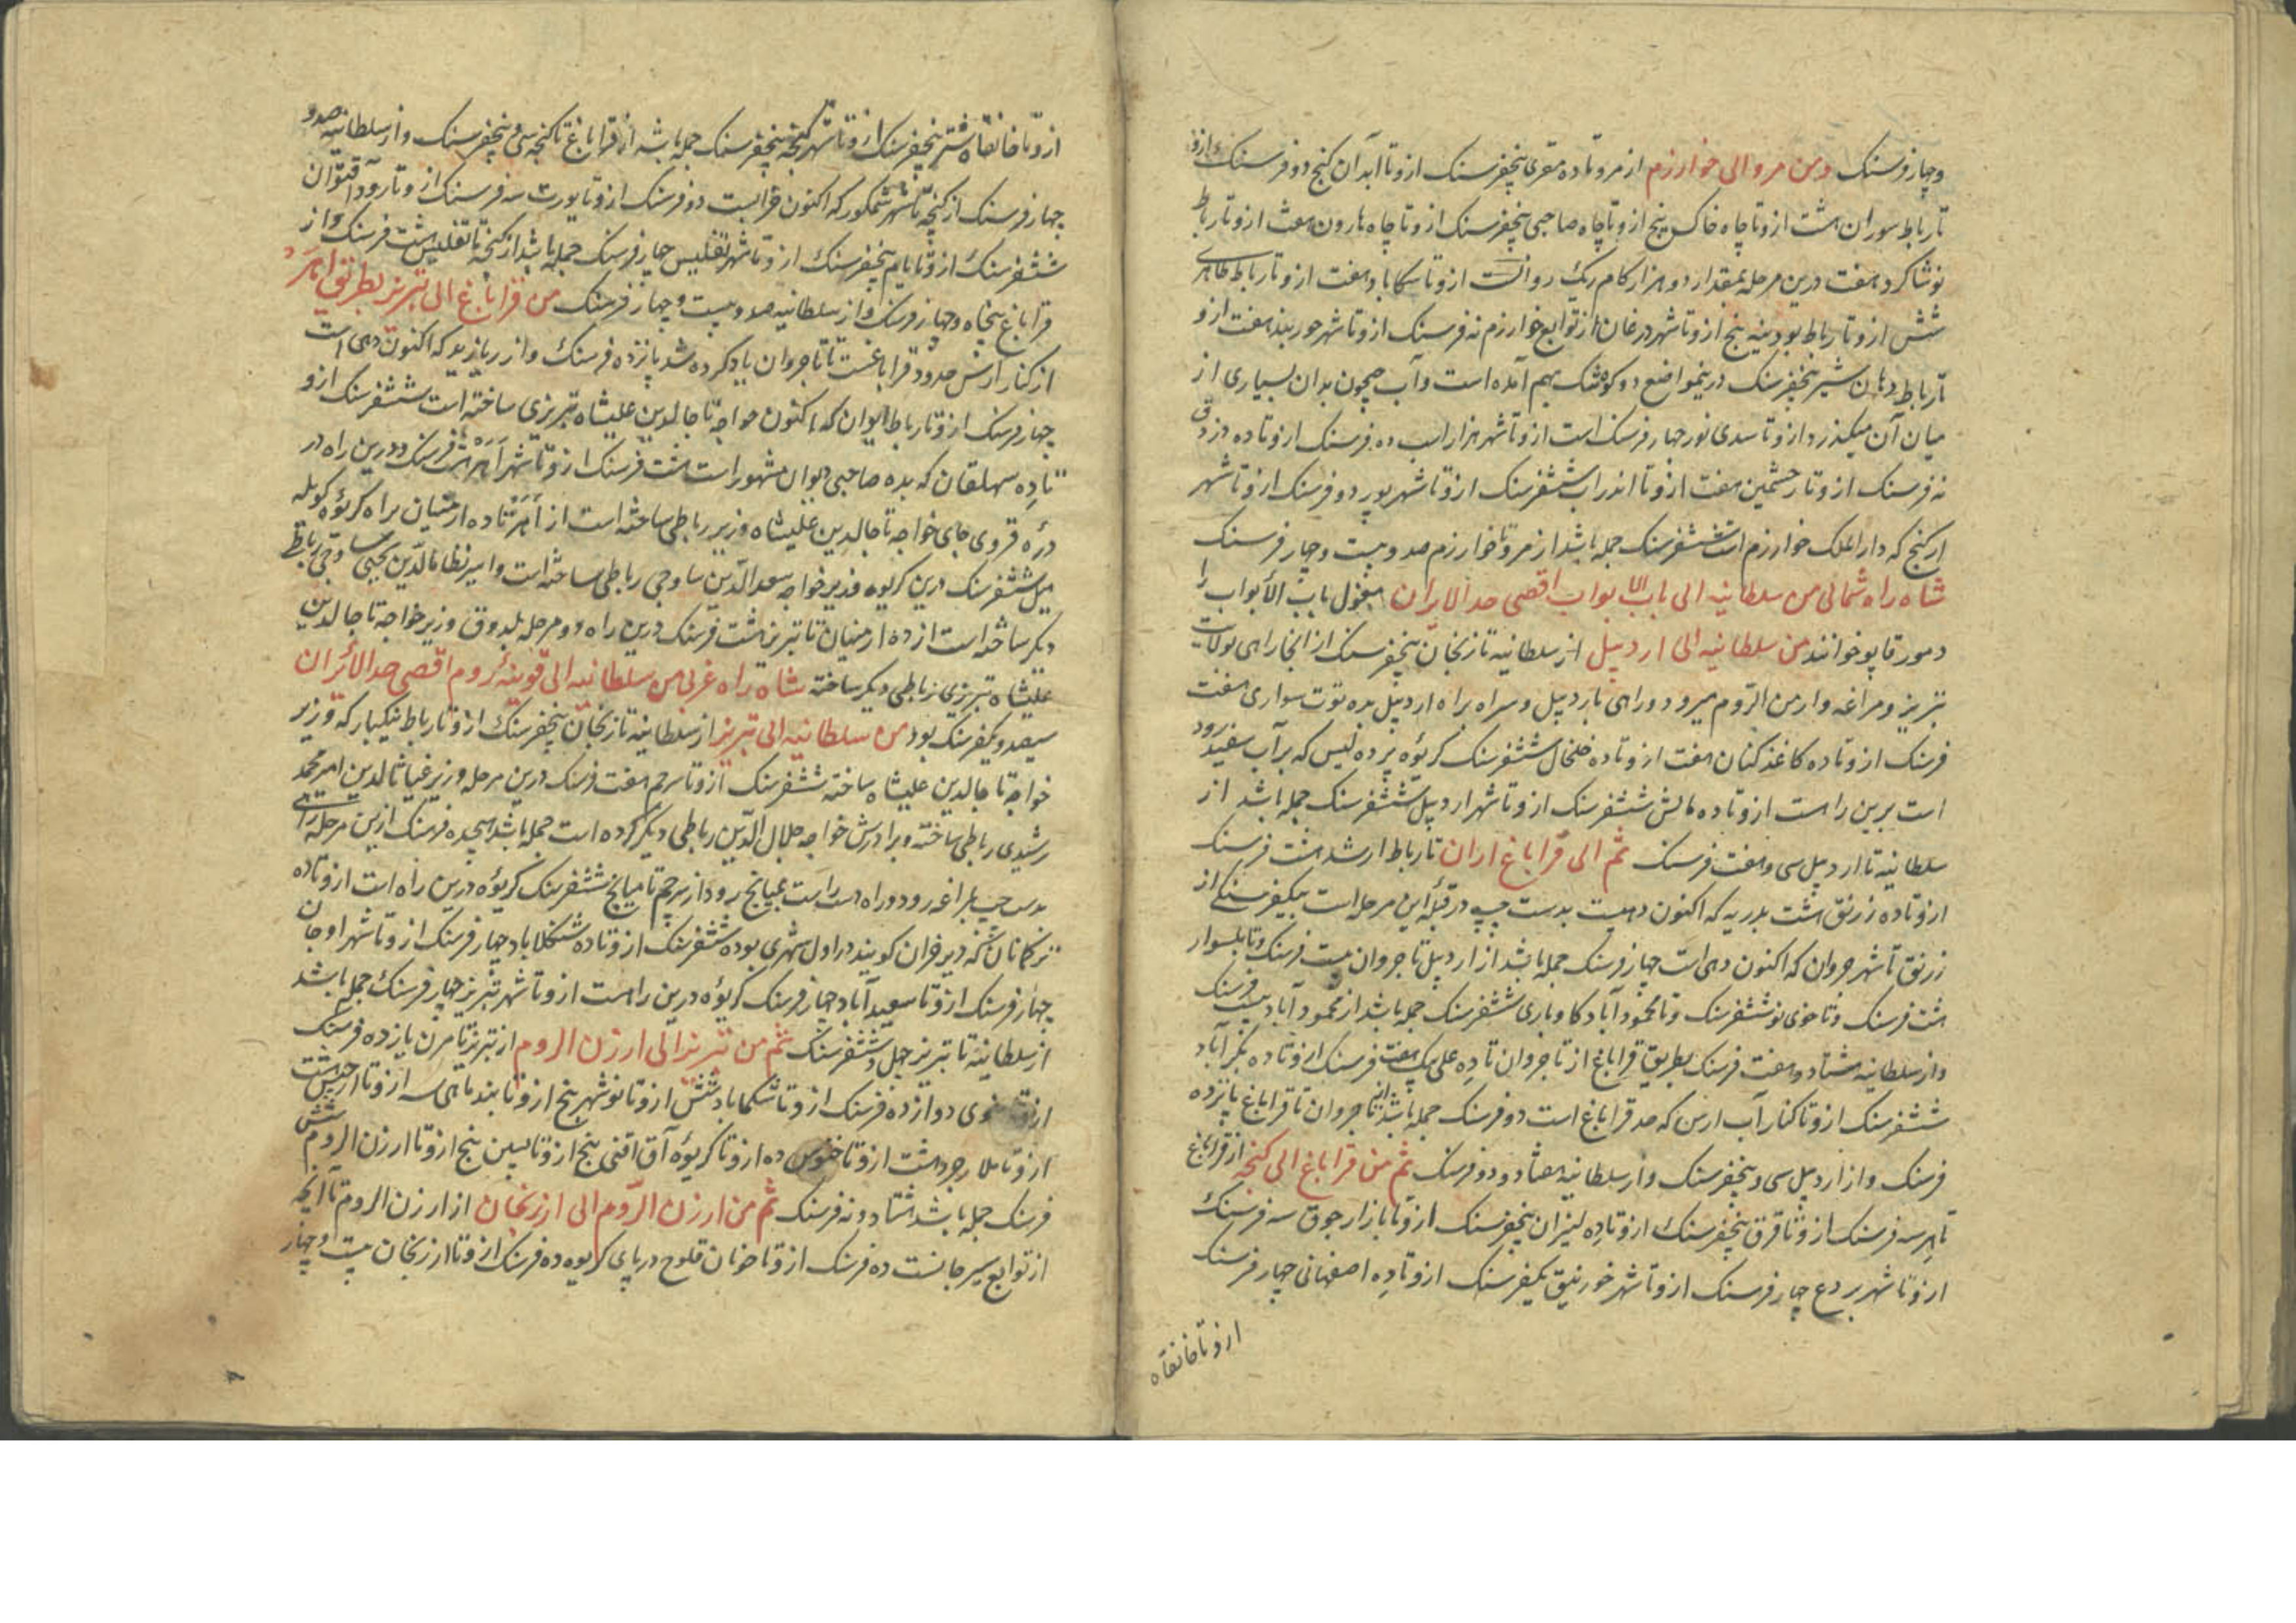 وچهار فرسنک ومن مرو الی خوارزم از مرو تا ده مقری پنجفرسنک ازو تا آبدان کنج دو فرسنک ازو
تا رباط سوران هشت ازو تا چاه خاک پنج ازو تا چاه صاحبی پنجفرسنک ازو تا چاه هارون هفت ازو تا رباط
نوشاکرد هفت درین مرحله بمقدار دو هزار کام ریک روانست ازو تا سکاباد هفت ازو تا رباط طاهری
شش ازو تا رباط بودینه پنج ازو تا شهر درغان از توابع خوارزم نه فرسنک ازو تا شهر جوربند هفت ازو
تا رباط دهان شیر پنجفرسنک درینمواضع دو کوه تنک بهم آمده است وآب جیحون بدان بسیاری از
میان آن میکذرد ازو تا سدی نور چهار فرسنک است ازو تا شهر هزار اسب ده فرسنک ازو تا ده دزدق
نه فرسنک ازو تا رخشمین هفت ازو تا اندرابشتششفرسنک ازو تا شهر یور دو فرسنک ازو تا شهر
ارکنج که دار الملک خوارزم است ششفرسنک جمله باشد از مرو تا خوارزم صد وبیست وچهار فرسنک
شاه راه شمالی من سلطانیه الی باب الابواب اقصی حد الایران مغول باب الابواب را
دمورقاپو خوانند من سلطانیه الی اردبیل از سلطانیه تا زنجان پنجفرسنک از انجا راهی بولایت
تبریز ومراغه وارمن الروم میرود وراهی باردبیل وسراه براه اردبیل بده توت سواری هفت
فرسنک ازو تا ده کاغذ کنان هفت ازو تا ده خلخال ششفرسنک کریوه پردلیس که بر آب سفیدرود
است برین راه است ازو تا ده مالش ششفرسنک ازو تا شهر اردبیل ششفرسنک جمله باشد از
سلطانیه تا اردبیل سی وهفت فرسنک ثم الی قراباغ اران تا رباط ارشد هشت فرسنک
ازو تا ده زرنق هشت بلدریه که اکنون دهیست بدست چپ در قبله این مرحله است بیکفرسنکی از
زرنق تا شهر جروان که اکنون دهی است چهار فرسنک جمله باشد از اردبیل تا جروان بیست فرسنک وتا بلسوار
هشت فرسنک وتا جوی نو ششفرسنک وتا محمود آباد کاوباری ششفرسنک جمله باشد از محمود آباد بیست فرسنک
واز سلطانیه هشتاد وهفت فرسنک بطریق قراباغ از تاجروان تا ده علی بیک هفت فرسنک ازو تا ده بکرآباد
ششفرسنک ازو تا کنار آب ارس که حد قراباغ است دو فرسنک جمله باشد از تاجروان تا قراباغ پانزده
فرسنک واز اردبیل سی وپنجفرسنک واز سلطانیه هفتاد ودو فرسنک ثم من قراباغ الی کنجه از قراباغ
تا هر سه فرسنک ازو تا قرق پنجفرسنک ازو تا ده لنبران پنجفرسنک ازو تا بازار جوق سه فرسنک
ازو تا شهر بردع چهار فرسنک ازو تا شهر خورنیق یکفرسنک ازو تا ده اصفهانی چهار فرسنک
ازو تا خانقاه
ازو تا خانقاه شتر پنجفرسنک ازو تا شهر کنجه پنجفرسنک جمله باشد از قراباغ تا کنجه سی وپنجفرسنک واز سلطانیه صد و
چهار فرسنک از کنجه تا شهر شمکور که اکنون خرابست دو فرسنک ازو تا یورت سه فرسنک ازو تا رود آقتوان
ششفرسنک ازو تا یام پنجفرسنک ازو تا شهر تفلیس چهار فرسنک جمله باشد از کنجه تا تفلیس هشت فرسنک واز
قراباغ پنجاه وچهار فرسنک واز سلطانیه صد وبیست وچهار فرسنک من قراباغ الی تبریز بطریق اهر
از کنار ارس حدود قراباغست تا تاجروان یاد کرده شد پانزده فرسنک واز بریازید که اکنون دهی است
چهار فرسنک ازو تا رباط ایوان که اکنون خواجه تاجالدین علیشاه تبریزی ساخته است ششفرسنک ازو
تا ده سهلقان که بده صاحبی دیوان مشهور است هشت فرسنک ازو تا شهر اهر هشت فرسنک ودرین راه در
دره قروی جای خواجه تاجالدین علیشاه وزیر رباطی ساخته است از اهر تا ده ارمنیان براه کریوه کویله
میل ششفرسنک درین کریوه وزیر خواجه سعد الدین ساوجی رباطی ساخته است وامیر نظامالدین یحیی ساوجی رباط
دیکر ساخته است از ده ارمنیان تا تبریز هشت فرسنک درین راه دو مرحله بلدوق وزیر خواجه تاجالدین
علیشاه تبریزی رباطی دیکر ساخته شاه راه غربی من سلطانیه الی قونیه روم اقصی حد الایران
سیصد ویکفرسنک بود من سلطانیه الی تبریز از سلطانیه تا زنجان پنجفرسنک ازو تا رباط نیکپار که وزیر
خواجه تاجالدین علیشاه ساخته ششفرسنک ازو تا سرجم هفت فرسنک درین مرحله وزیر غیاثالدین امیر محمد
رشیدی رباطی ساخته وبرادرش خواجه جلال الدین رباطی دیکر کرده است جمله باشد هیجده فرسنک ازین مرحله راهی
بدست چپ بمراغه رود وراه دست راست بمیانج رود از سرجم تا میانج ششفرسنک کریوه درین راه است ازو تا ده
ترکمانان که دیر خران کویند در اول شهری بوده ششفرسنک ازو تا ده شنکلاباد چهار فرسنک ازو تا شهر اوجان
چهار فرسنک ازو تا سعید آباد چهار فرسنک کریوه درین راهست ازو تا شهر تبریز چهار فرسنک جمله باشد
از سلطانیه تا تبریز چهل وششفرسنک ثم من تبریز الی ارزن الروم از تبریز تا مرن یازده فرسنک
ازو تا خوی دوازده فرسنک ازو تا شکماباد شش ازو تا نوشهر پنج ازو تا بند ماهی سه ازو تا ارجیش هشت
ازو تا ملازجرد هشت ازو تا خنوس ده ازو تا کریوه آق افتی پنج ازو تا پسین پنج ازو تا ارزن الروم شش
فرسنک جمله باشد هشتاد ونه فرسنک ثم من ارزن الروم الی ارزنجان از ارزن الروم تا آنجه
از توابع سیرجانست ده فرسنک ازو تا خونان قلوج در پای کریوه ده فرسنک ازو تا ارزنجان بیست وچهار